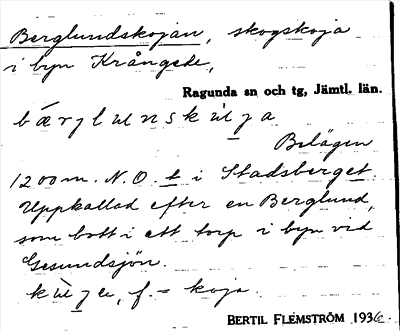 Berglundskojan, skogskoja
i byn Krångede,
Ragunda sn och tg, Jämtl. län.
Belägen
1200 m. N.O. t i Stadsberget
Uppkallad efter en Berglund,
som bott i ett torp i byn vid
Gesundsjön.
f. = koja.
BERTIL FLEMSTRÖM 1936.